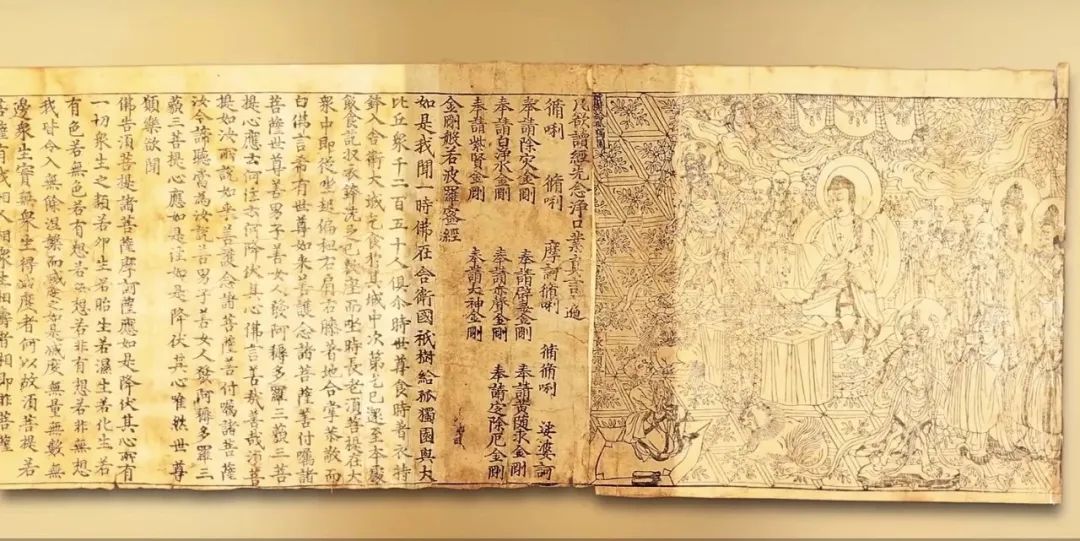 凡欲讀經先念淨口業真言一遍
脩唎 脩唎 摩訶脩唎 脩脩唎 娑婆訶
奉請除灾金剛 奉請辟毒金剛 奉請黃隨求金剛
奉請白淨水金剛 奉請赤聲金剛 奉請定除厄金剛
奉請紫賢金剛 奉請大神金剛
金剛般若波羅蜜經
如是我聞一時佛在舍衛國祇樹給孤獨園與大
比丘衆千二百五十人俱尒時世尊食時著衣持
鉢入舍衛大城乞食於其城中次第乞已還至本處
飯食訖收衣鉢洗足已敷座而坐時長老須菩提在大
衆中即從座起偏袒右肩右膝著地合掌恭敬而
白佛言希有世尊如來善護念諸菩薩善付囑諸
菩薩世尊善男子善女人發阿耨多羅三藐三菩
提心應云何住云何降伏其心佛言善哉善哉須菩
提如汝所說如來善護念諸菩薩善付囑諸菩薩
汝今諦聽當為汝說善男子善女人發阿耨多羅三
藐三菩提心應如是住如是降伏其心唯然世尊
願樂欲聞
佛告須菩提諸菩薩摩訶薩應如是降伏其心所有
一切衆生之類若卵生若胎生若濕生若化生若
有色若無色若有想若無想若非有想若非無想
我皆令入無餘涅槃而滅度之如是滅度無量無數無
邊衆生實無衆生得滅度者何以故須菩提若
菩薩有我相人相衆生相壽者相即非菩薩